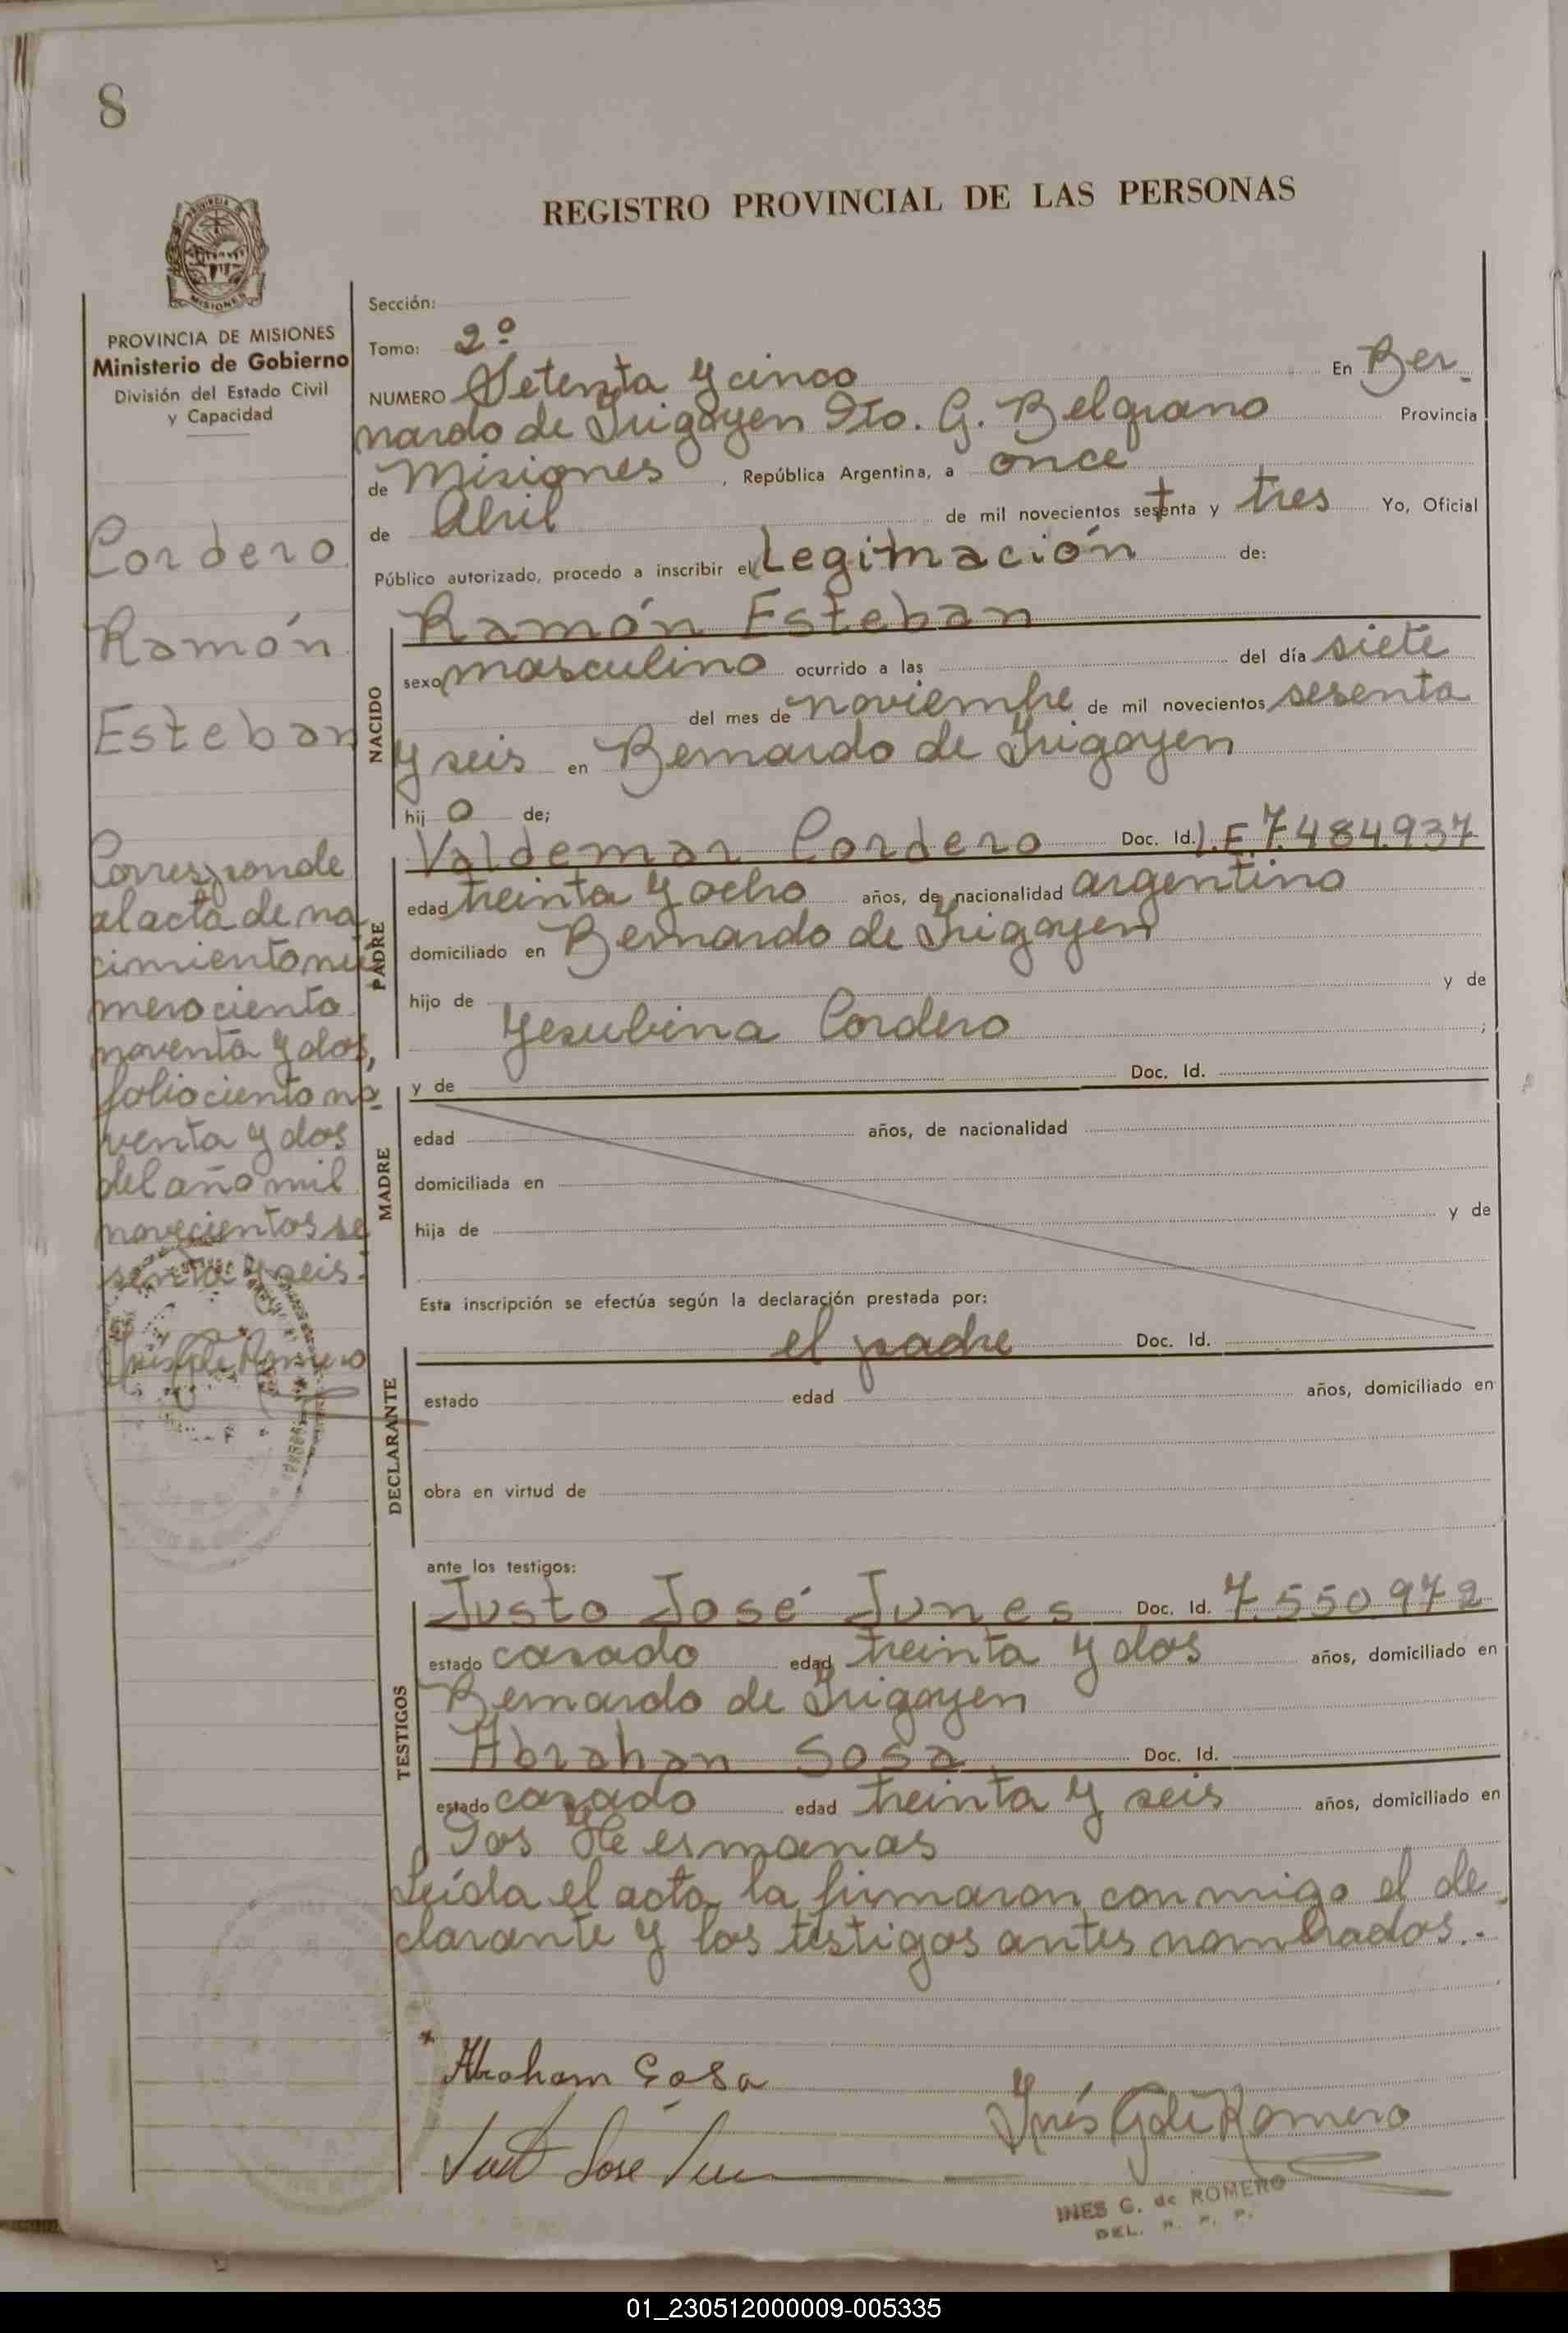 8
REGISTRO PROVINCIAL DE LAS PERSONAS
PROVINCIA DE MISIONES
Ministerio de Gobierno
División del Estado Civil
y Capacidad
Cordero
Ramón
Esteban
Corresponde
al acta de na
cimiento nú
mero ciento
noventa y dos,
folio ciento no
venta y dos
del año mil
novecientos se
senta y seis.
Inés G de Romero
Sección:
Tomo: 2º
NUMERO Setenta y cinco En Ber-
nardo de Irigoyen Dto. G. Belgrano Provincia
de Misiones, República Argentina, a once
de Abril de mil novecientos setenta y tres Yo, Oficial
Público autorizado, procedo a inscribir el Legimación de:
Ramón Esteban
NACIDO
sexo masculino ocurrido a las del día siete
del mes de noviembre de mil novecientos sesenta
y seis en Bernardo de Irigoyen
hijo de;
Valdemar Cordero Doc. Id. I.E 7.484.937
PADRE
edad treinta y ocho años, de nacionalidad argentino
domiciliado en Bernardo de Irigoyen
hijo de y de
Yesubina Cordero ;
y de Doc. Id.
MADRE
edad años, de nacionalidad
domiciliada en
hija de y de
Esta inscripción se efectúa según la declaración prestada por:
el padre Doc. Id.
DECLARANTE
estado edad años, domiciliado en
obra en virtud de
ante los testigos:
Justo José Junes Doc. Id. 7.550.972
TESTIGOS
estado casado edad treinta y dos años, domiciliado en
Bernardo de Irigoyen
Abrahan Sosa Doc. Id.
estado casado edad treinta y seis años, domiciliado en
Dos Hermanas
Leída el acta, la firmaron conmigo el de-
clarante y los testigos antes nombrados.-
Abraham Sosa
Inés G de Romero
Just José
INES G. de ROMERO
DEL. R. P. P.
01_230512000009-005335